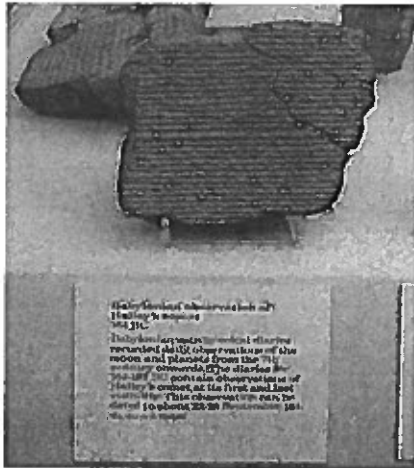 Babylonian observation of
Halley's comet
164 BC
Babylonian astronomical diaries
recorded daily observations of the
moon and planets from the
century onwards. The diaries
contain observations of
Halley's comet, at its first and last
This observation can be
dated to about 22-28 September 164